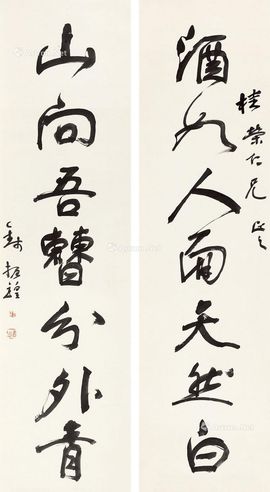 桂榮仁兄正之
酒如人面天然白
山向吾曹分外青